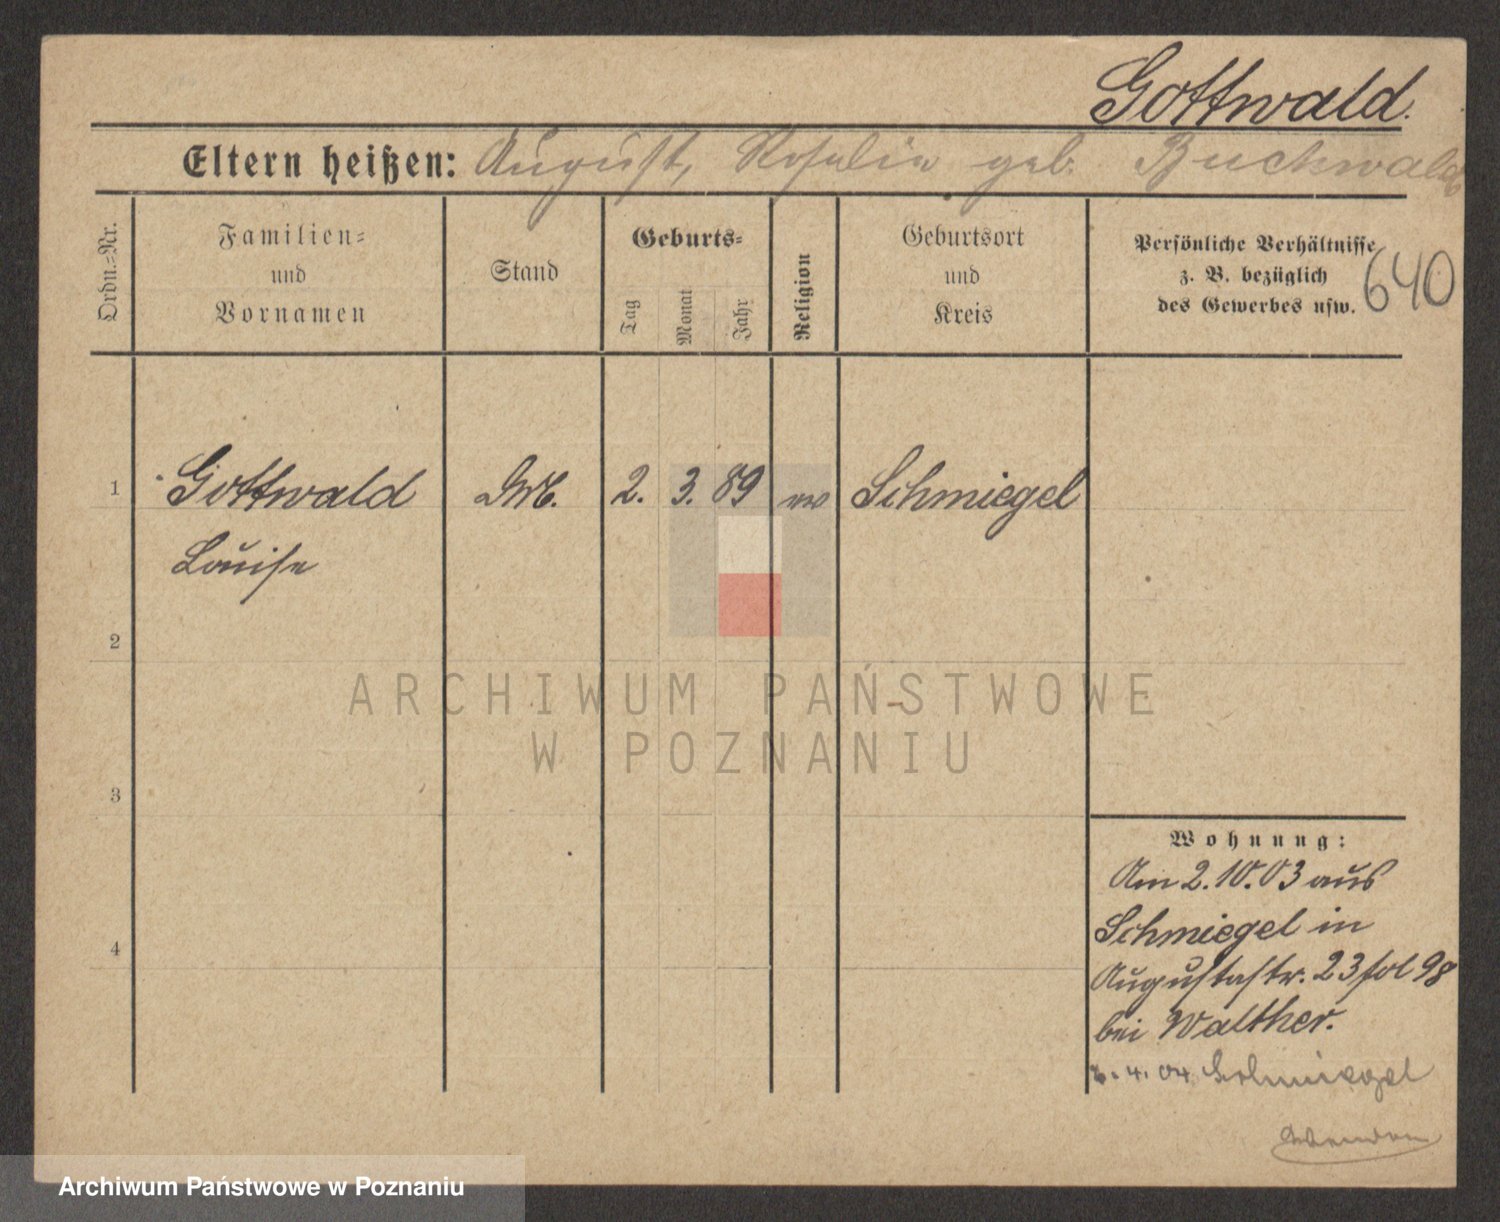 Gottwald.
Eltern heißen: August, Rosalie geb. Buchwald
Ordn.-Nr.
Familien-
und
Vornamen
Stand
Geburts-
Tag
Monat
Jahr
Religion
Geburtsort
und
Kreis
Persönliche Verhältnisse
z. B. bezüglich
des Gewerbes usw.
640
1 Gottwald 2. 3. 89 ev Schmiegel
Louise
2
3
4
Wohnung:
Am 2.10.03 aus
Schmiegel in
Augustastr. 23 fol 98
bei Walther.
4. 04 Schmiegel
Wenden
ARCHIWUM PAŃSTWOWE
W POZNANIU
Archiwum Państwowe w Poznaniu